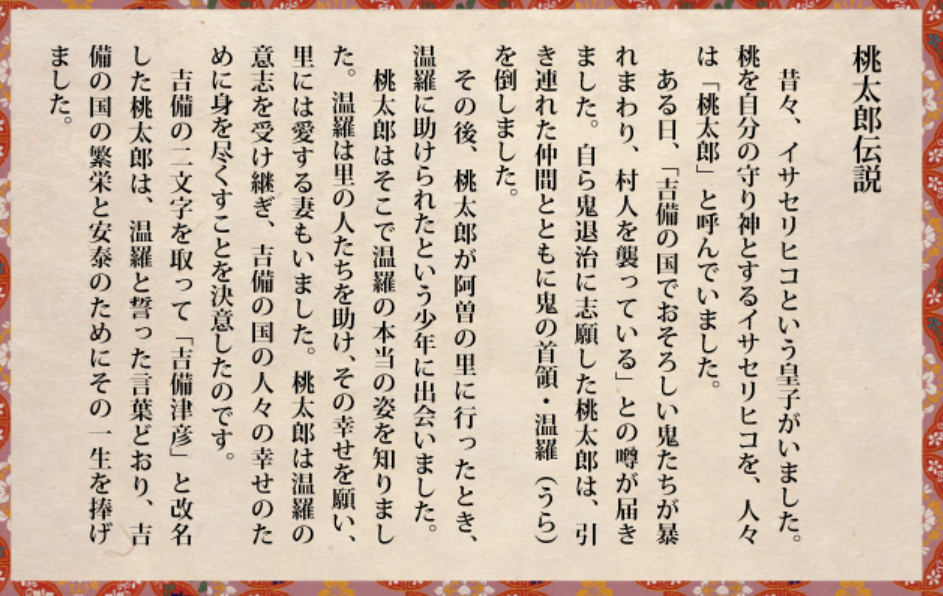 桃太郎伝説
昔々、イサセリヒコという皇子がいました。
桃を自分の守り神とするイサセリヒコを、人々
は「桃太郎」と呼んでいました。
ある日、「吉備の国でおそろしい鬼たちが暴
れまわり、村人を襲っている」との噂が届き
ました。自ら鬼退治に志願した桃太郎は、引
き連れた仲間とともに鬼の首領・温羅（うら）
を倒しました。
その後、桃太郎が阿曽の里に行ったとき、
温羅に助けられたという少年に出会いました。
桃太郎はそこで温羅の本当の姿を知りまし
た。温羅は里の人たちを助け、その幸せを願い、
里には愛する妻もいました。桃太郎は温羅の
意志を受け継ぎ、吉備の国の人々の幸せのた
めに身を尽くすことを決意したのです。
吉備の二文字を取って「吉備津彦」と改名
した桃太郎は、温羅と誓った言葉どおり、吉
備の国の繁栄と安泰のためにその一生を捧げ
ました。